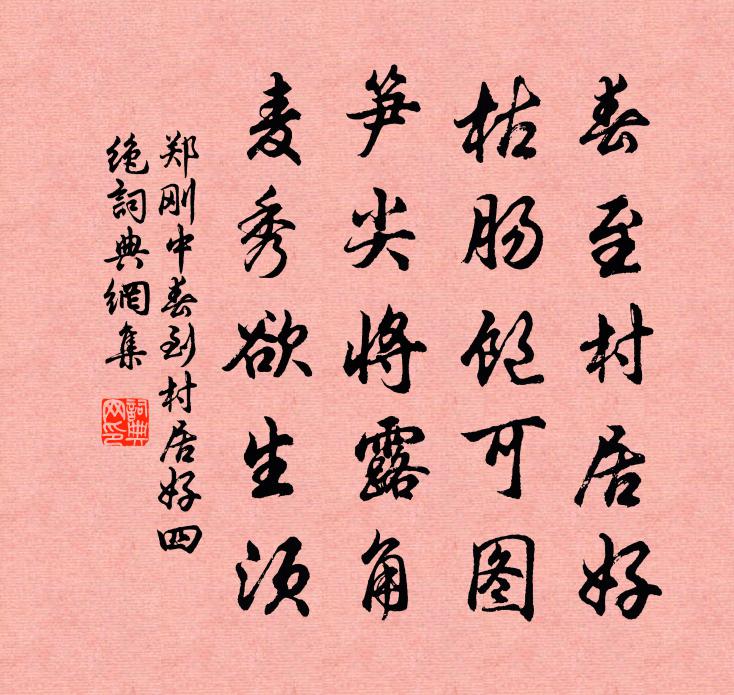 春至村居好
枯肠饱可图
笋尖将露角
麦秀欲生须
郑刚中春到村居好四
绝詞典網集
詞典网印